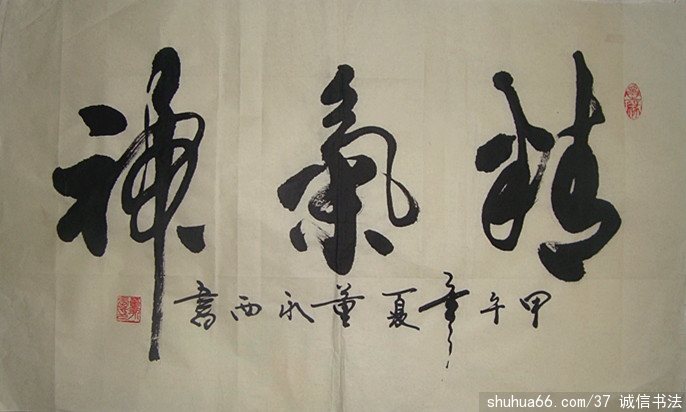 精氣神
甲午年夏董永西書
shuhua66.com/37 诚信书法